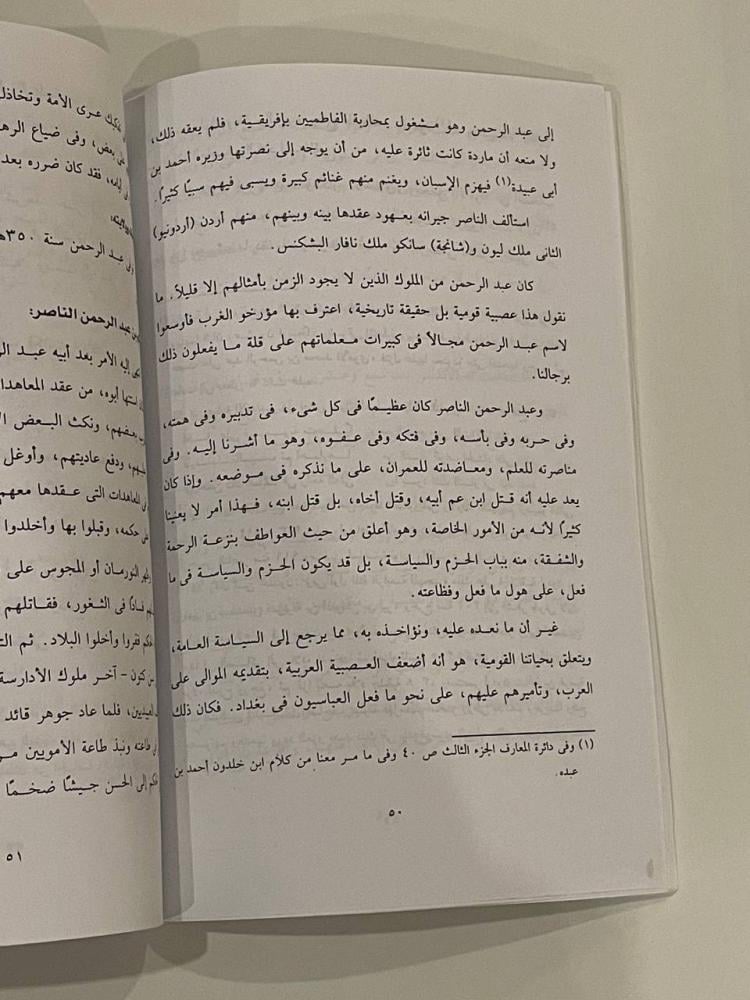 إلى عبد الرحمن وهو مشغول بمحاربة الفاطميين بإفريقية، فلم يعقه ذلك،
ولا منعه أن ماردة كانت ثائرة عليه، من أن يوجه إلى نصرتها وزيره أحمد بن
أبى عبيدة(١) فيهزم الإسبان، ويغنم منهم غنائم كبيرة ويسبى فيهم سبيًا كثيرًا.
استألف الناصر جيرانه بعهود عقدها بينه وبينهم، منهم أردن (أردونيو)
الثانى ملك ليون و(شانجة) سانكو ملك نافار البشكنس.
كان عبد الرحمن من الملوك الذين لا يجود الزمن بأمثالهم إلا قليلاً. ما
نقول هذا عصبية قومية بل حقيقة تاريخية، اعترف بها مؤرخو الغرب فأوسعوا
لاسم عبد الرحمن مجالاً فى كبيرات معلماتهم على قلة ما يفعلون ذلك
برجالنا.
وعبد الرحمن الناصر كان عظيمًا فى كل شىء، فى تدبيره وفى همته،
وفى حربه وفى بأسه، وفى فتكه وفى عفوه، وهو ما أشرنا إليه. وفى
مناصرته للعلم، ومعاضدته للعمران، على ما نذكره فى موضعه. وإذا كان
يعد عليه أنه قتل ابن عم أبيه، وقتل أخاه، بل قتل ابنه، فهذا أمر لا يعنينا
كثيرًا لأنه من الأمور الخاصة، وهو أعلق من حيث العواطف بنزعة الرحمة
والشفقة، منه بباب الحزم والسياسة، بل قد يكون الحزم والسياسة فى ما
فعل، على هول ما فعل وفظاعته.
غير أن ما نعده عليه، ونؤاخذه به، مما يرجع إلى السياسة العامة،
ويتعلق بحياتنا القومية، هو أنه أضعف العصبية العربية، بتقديمه الموالى على
العرب، وتأميرهم عليهم، على نحو ما فعل العباسيون فى بغداد. فكان ذلك
(١) وفى دائرة المعارف الجزء الثالث ص ٤٠ وفى ما مر معنا من كلام ابن خلدون أحمد بن
عبده.
٥٠
عرى الأمة وتخاذل
بعض، وفى ضياع
فقد كان ضرره بعد
عبد الرحمن سنة ٣٥٠هـ
عبد الرحمن الناصر:
إليه الأمر بعد أبيه عبد
أبوه، من عقد المعاهدا
بعضهم، ونكث البعض
ودفع عاديتهم، وأوغل
المعاهدات التى عقدها معهم
حكمه، وقبلوا بها وأخلدوا
النورمان أو المجوس على
فسادًا فى الثغور، فقاتلهم
ففروا وأخلوا البلاد. ثم
كنون - آخر ملوك الأدارسة
فلما عاد جوهر قائد
طاعته ونبذ طاعة الأمويين
إلى الحسن جيشًا ضخمًا
٥١